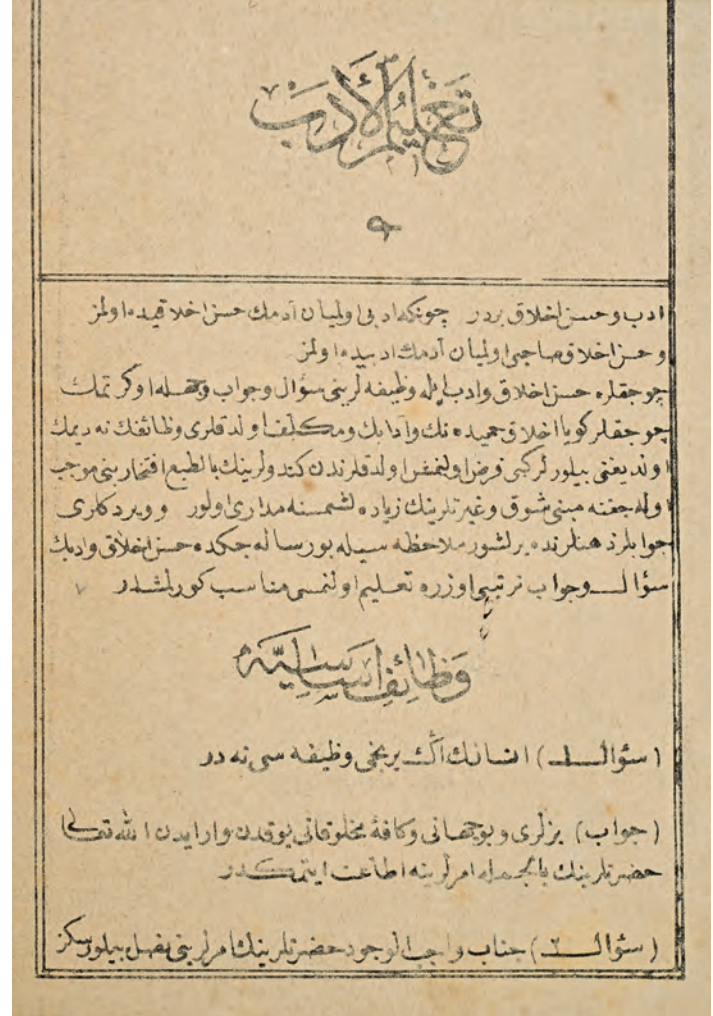 تعليم الأدب
ادب و حسن اخلاق بردر چونكه ادبی اولميان آدمك حسن اخلاقيده اولمز
و حسن اخلاق صاحبی اولميان آدمك ادبيده اولمز
چوجقلره حسن اخلاق وادب ايله وظيفه لرينی سؤال وجواب وجهله اوكرتمك
چوجقلر كويا اخلاق حميده نك وآدابك ومكلف اولدقلری وظائفك نه ديمك
اولديغنی بيلورلر كبی فرض اولنمش اولدقلرندن كندولرينك بالطبع افتخارينی موجب
اوله جغنه مبنی شوق وغيرتلرينك زياده لشمسنه مداری اولور و ويردكلری
جوابلر ذهنلرنده يرلشور ملاحظه سيله بو رساله جكده حسن اخلاق وادبك
سؤال وجواب ترتيبی اوزره تعليم اولنمسی مناسب كورلمشدر
وظائف اساسيه
(سؤال ١) انسانك اڭ برنجی وظيفه سی نه در
(جواب) بزلری و بو جهانی وكافۀ مخلوقاتی يوقدن وار ايدن الله تعالی
حضرتلرينك بالجمله امرلرينه اطاعت ايتمكدر
(سؤال ٢) جناب واجب الوجود حضرتلرينك امرلرينی نصل بيلورسكز